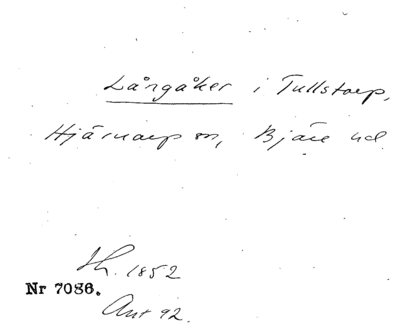 Långåker i Tullstorp,
Hjärnarp sn, Bjäre hd
Sk. 1852
Nr 7086.
Ant 92.